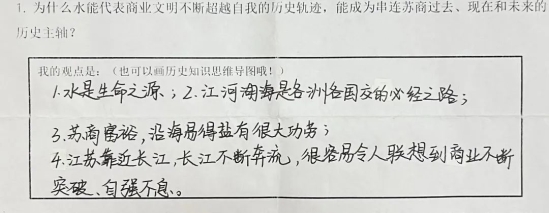 1. 为什么水能代表商业文明不断超越自我的历史轨迹，能成为串连苏商过去、现在和未来的
历史主轴？
我的观点是：（也可以画历史知识思维导图哦！）
1.水是生命之源；2.江河湖海是各洲各国交的必经之路；
3.苏商富裕，沿海易得盐有很大功劳；
4.江苏靠近长江，长江不断奔流，很容易令人联想到商业不断
突破、自强不息。